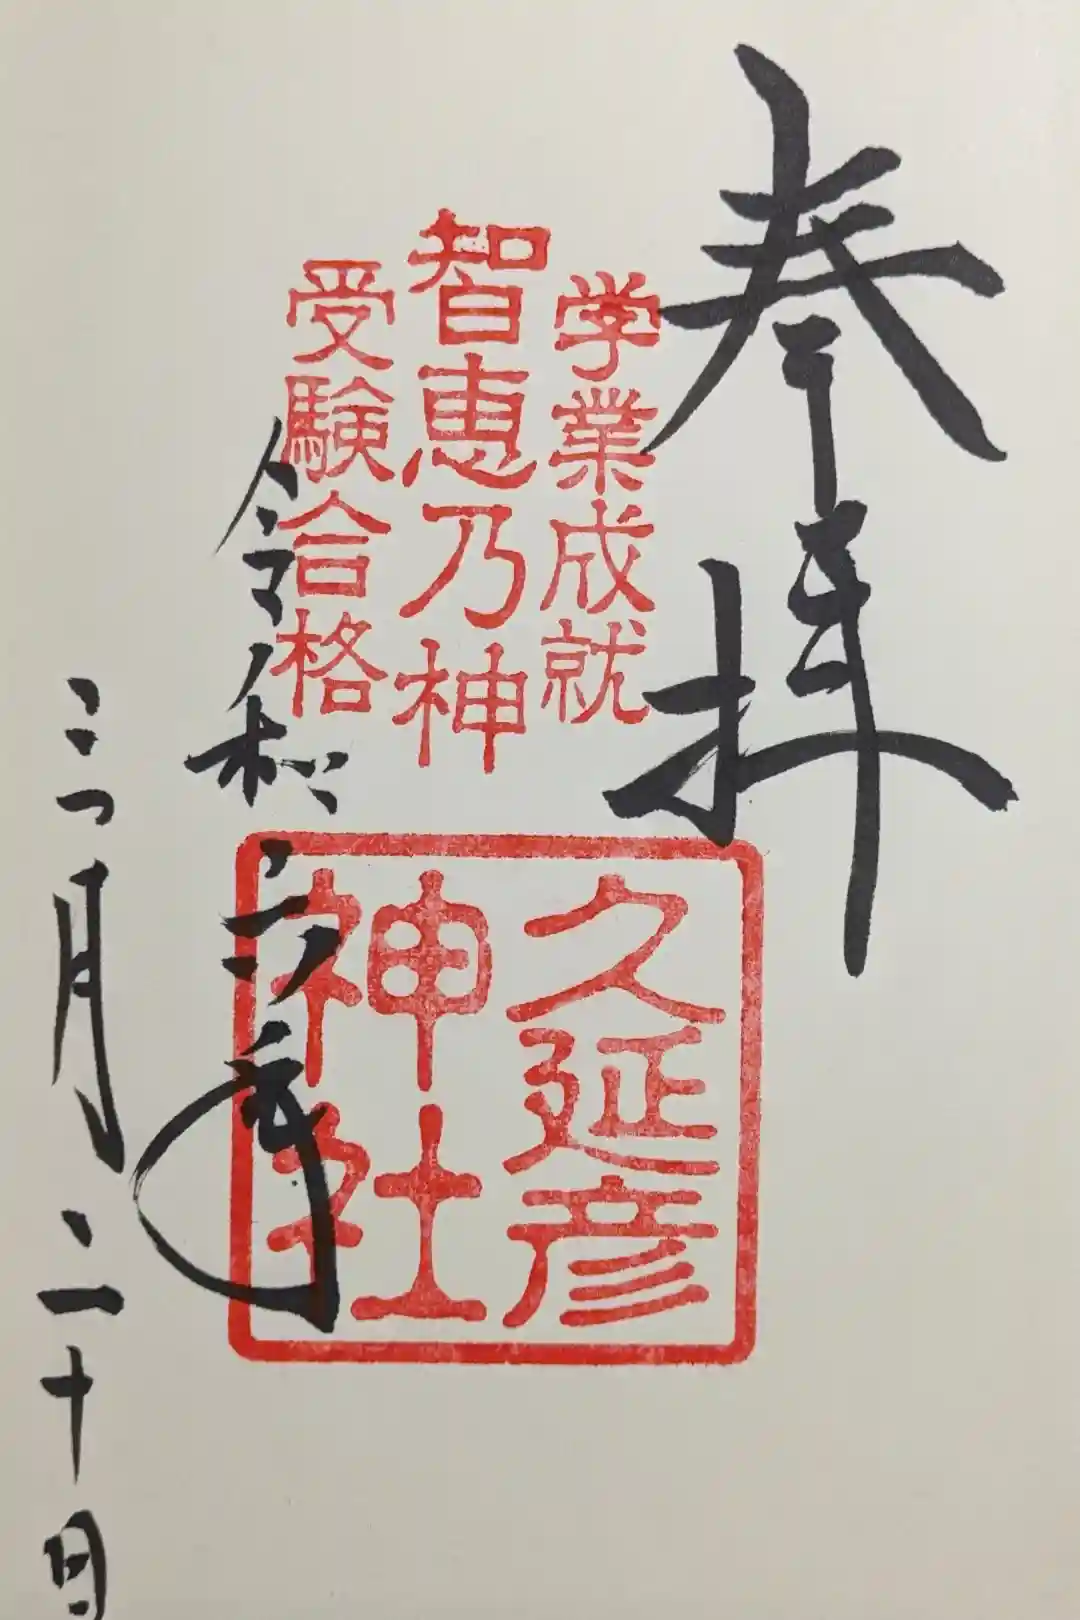 奉拝
学業成就
智恵乃神
受験合格
久延彦
神社
令和六年
三月二十日